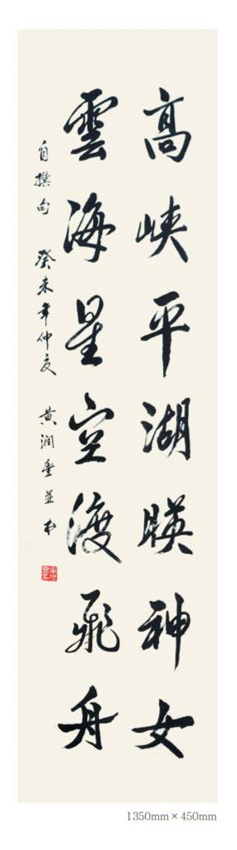 高峡平湖暎神女
雲海星空渡飛舟
自撰句 癸未年仲夏 黄润垂並书
1350mm × 450mm